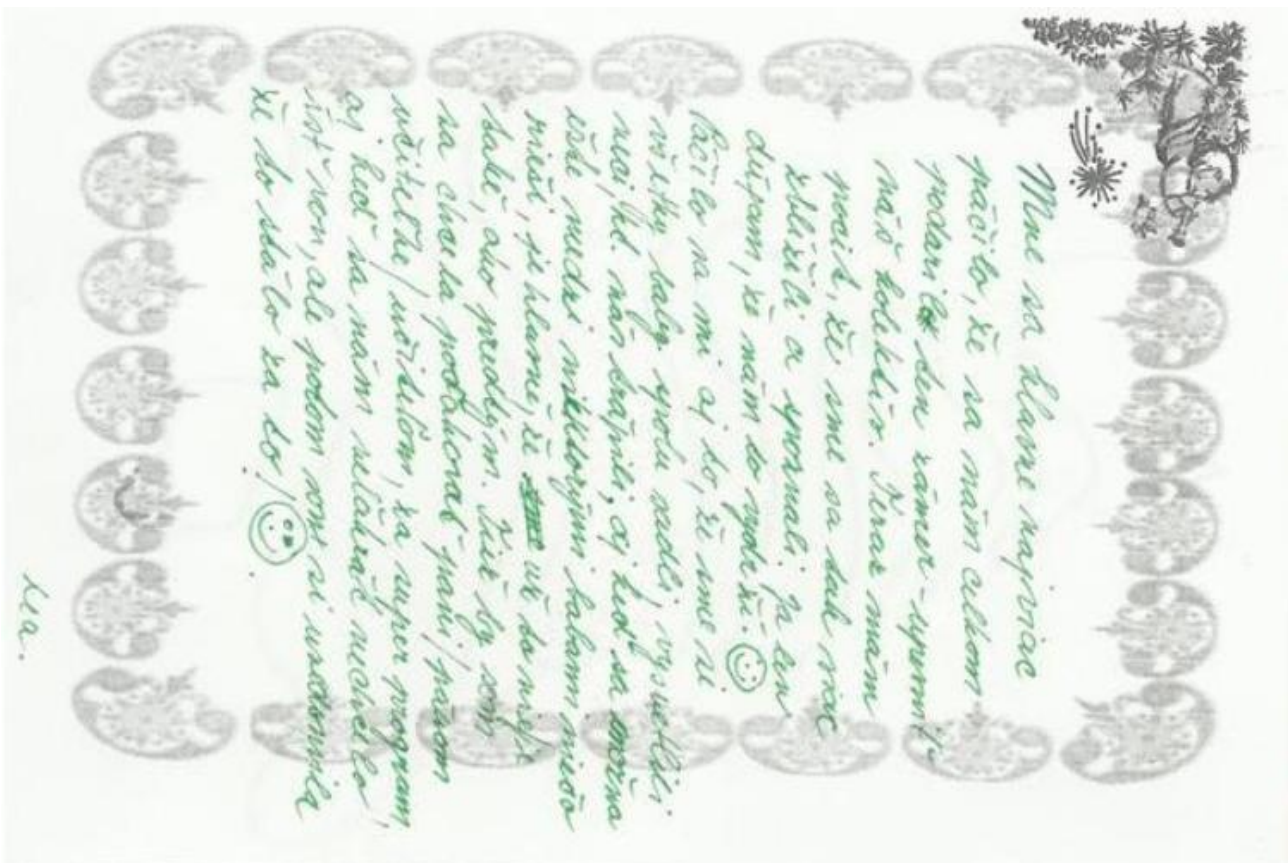 Mne sa hlavne najviac
páčilo, že sa nám celkom
podaril ten zámer - upevniť
náš kolektív. Teraz mám
pocit, že sme sa tak viac
zblížili a spoznali. Ja len
dúfam, že nám to vydrží.
Páčilo sa mi aj to, že sme si
všetky baby spolu sadli, vysvetlili
veci, kt. nás trápili, aj keď sa možno
ešte medzi niektorými babami niečo
rieši, je hlavné, že už to nie je
také, ako predtým. Tiež by som
sa chcela poďakovať pani/pánom
učiteľke/učiteľom, za super program,
aj keď sa nám niekedy nechcelo
ísť von, ale potom som si uvedomila
že to stálo za to!
Lea.